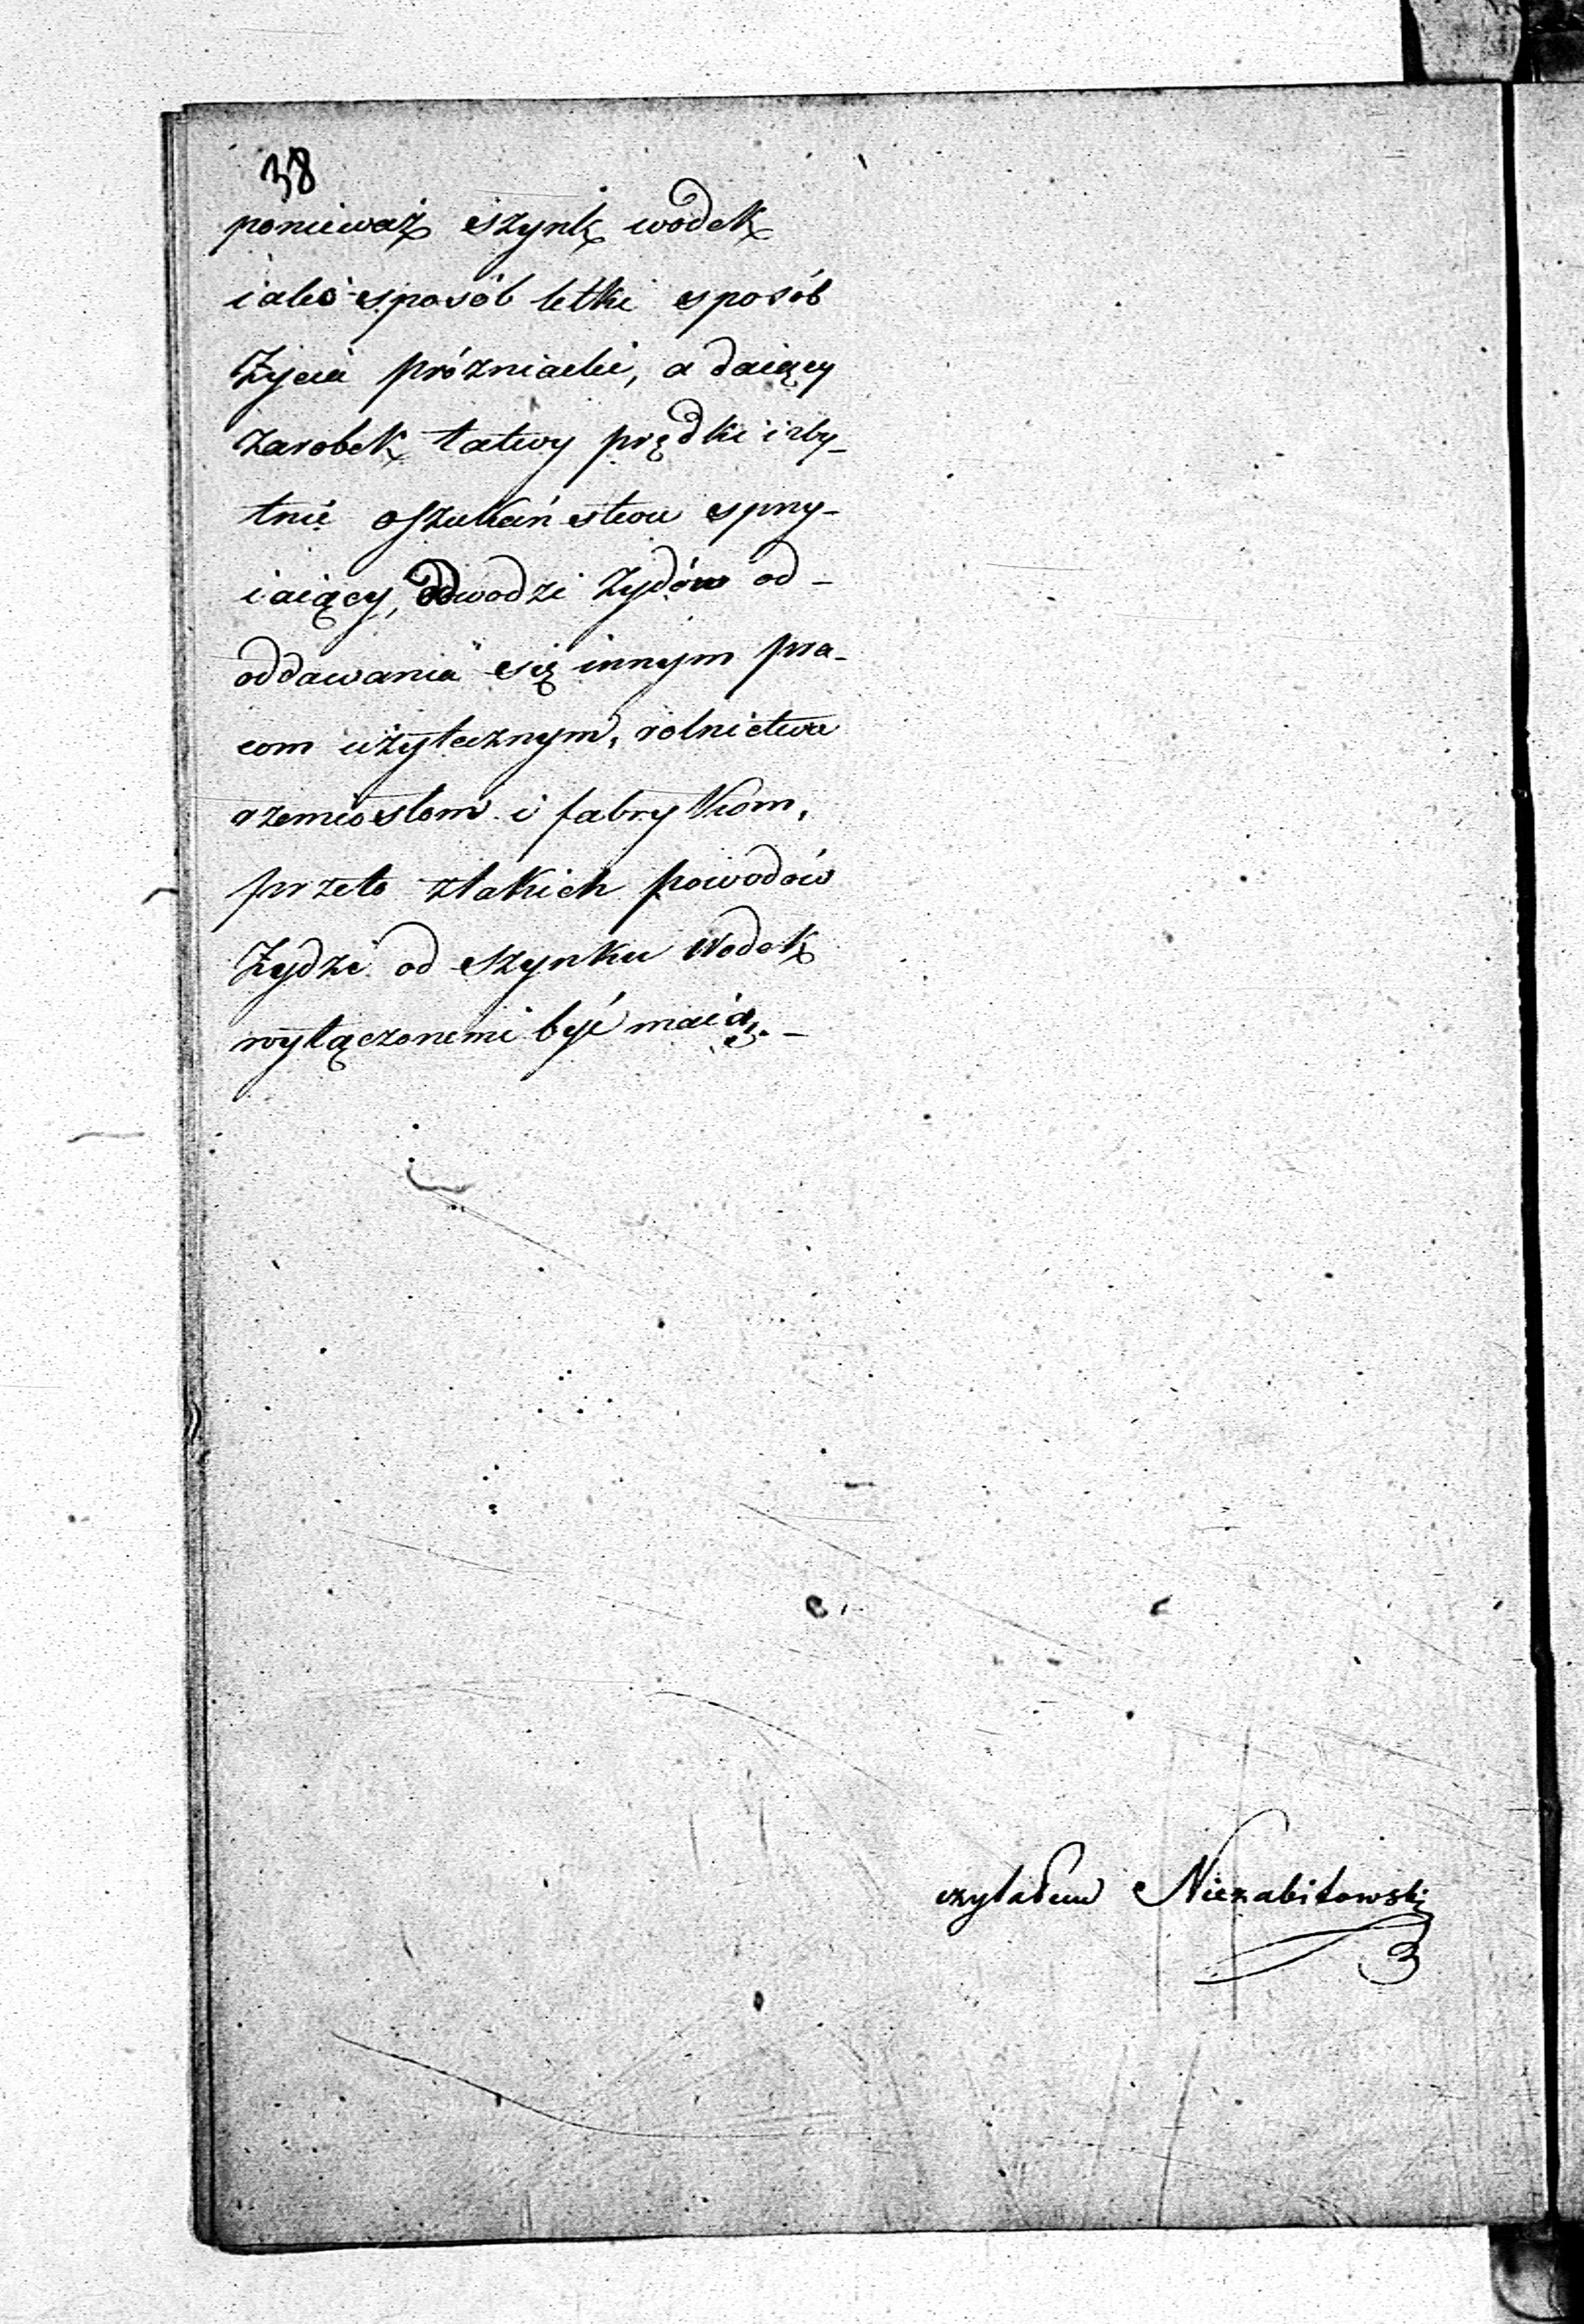 38
ponieważ szynk wodek
iako sposób letki sposób
Życia prózniacki, a daiący
Zarobek łatwy prędki i zby-
tnie oszukaństwu spry-
iaiący, odwodzi Żydów od-
oddawania się innym pra-
com użytecznym, rolnictwu
rzemiosłom i fabrykom,
przeto z takich powodów
Żydzi od szynku Wodek
wyłączonemi być maią. -
czytałem Niezabitowski